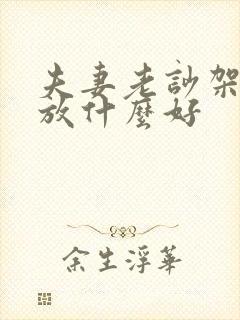 夫妻老訃架
放什麼好
余生浮華